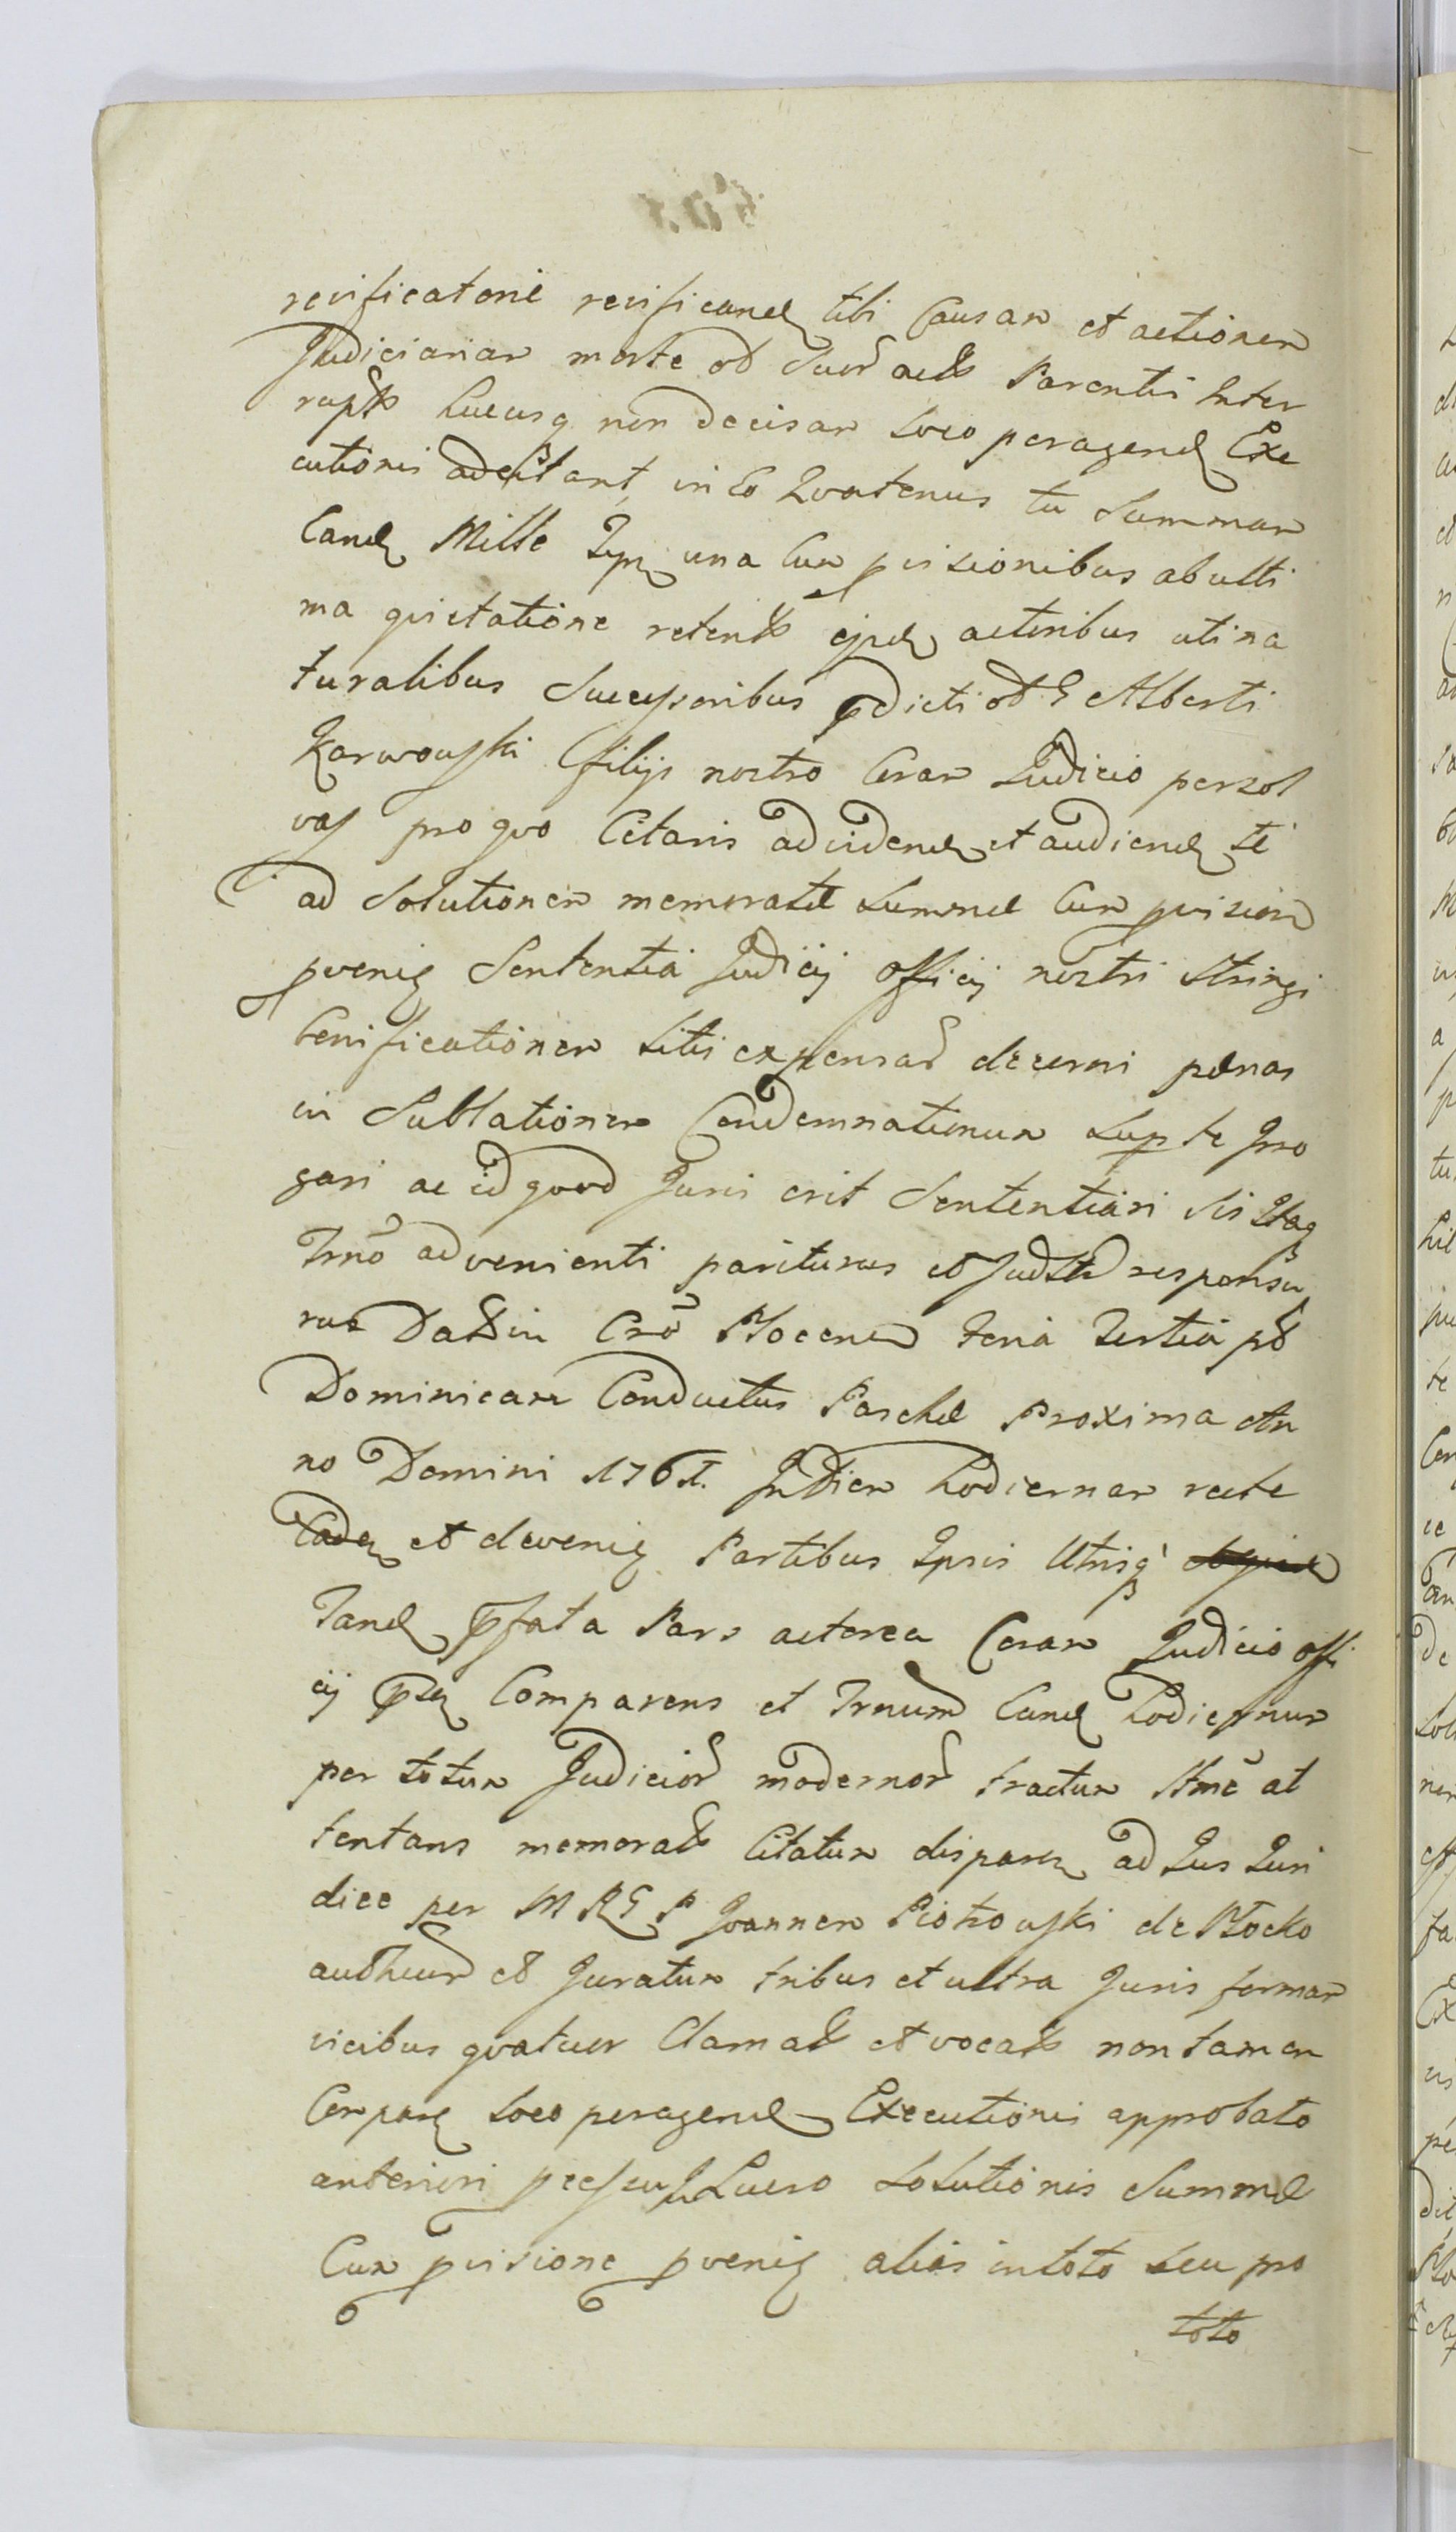 revificatorie revificand tibi Causam et actionem
Judiciariam morte od suor act Parentis Inter
rupt hucusq non decisam loco peragend Exe
cutionis adcitant, in eo Quatenus tu Summam
eand Mille Tyn una Cum pvisionibus ab ulti
ma quietatione retent ejsd actoribus uti na
turalibus Successoribus pdicti od G Alberti
Karwowski filijs nostro Coram Judicio persol
vas pro quo Citaris ad vidend et audiend te
ad Solutionem memorate Summe Cum pvision
pvenien Sententia Judicij Officij nostri Stringi
bonificationem litis expensar decerni penas
in Sublationem Condemnationum Sup te Irro
gari ac id quod Juris erit Sententiari Sis Itaq
Trno advenienti pariturus et Judtr responsu
rus Dat in Cro Plocen feria Tertia pt
Dominicam Conductus Pasche Proxima An
no Domini 1761. In Diem hodiernam recte
Caden et devenien Partibus Ipsis Utrisq
Tand pfata Pars actorea Coram Judicio offi
cij pn Comparens et Trnum Eund hodiernum
per totum Judicior modernor tractum ltme at
tentans memorat Citatum disparen ad Jus Juri
dice per M R G P Joannem Piotrowski de Plocko
authum et Juratum tribus et ultra Juris formam
vicibus quatuor Clamat et vocat non tamen
Compar loco peragend Executionis approbato
anteriori pcessu Lucro Solutionis Summe
Cum pvisione pvenien alias in toto seu pro
toto